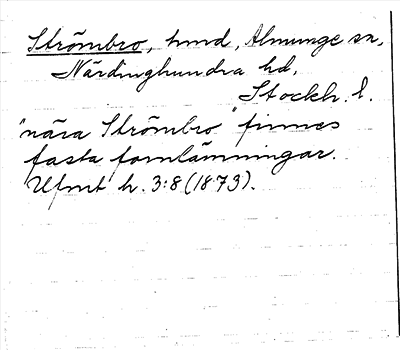 Strömbro, hmd, Almunge sn,
Närdinghundra hd,
Stockh. l.
"nära Strömbro" finnes
fasta fornlämningar.
Ufmt h. 3:8 (1873).